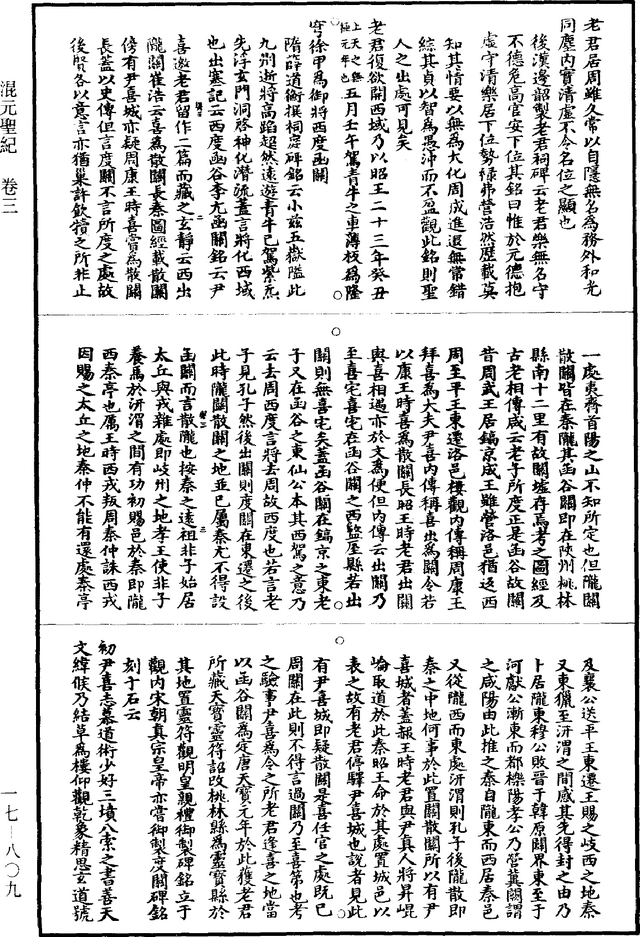 老君居周雖久常以自隱無名為務外和光
同塵內實清虛不令名位之顯也
後漢邊韶製老君祠碑云老君樂無名守
不德危高官安下位其銘曰惟於元德抱
虛守清樂居下位勢祿弗營浩然歷載莫
知其情要以無為大化周成進退無常錯
綜其貞以智為愚沖而不盈觀此銘則聖
人之出處可見矣
老君復欲開西域乃以昭王二十三年癸丑
五月壬午駕青牛之車薄板為隆
穹徐甲為御將西度函關
隋薛道衡撰祠庭碑銘云小兹五嶽隘此
九州逝將高蹈超然遠遊青牛已駕紫炁
先浮玄門洞啓神化潛流蓋言將化西域
也出塞記云西度函谷李尤函關銘云尹
喜邀老君留作二篇而藏之玄靜云西出
隴關崔浩云喜為散關長秦圖經載散關
傍有尹喜城亦疑周康王時喜嘗為散關
長蓋以史傳但言度關不言所度之處故
後賢各以意言亦猶巢許飲犢之所非止
一處夷齊首陽之山不知所定也但隴關
散關皆在秦隴其函谷關即在陝州桃林
縣南十二里有故關墟存焉考之圖經及
古老相傳咸云老子所度正是函谷故關
昔周武王居鎬京成王雖營洛邑猶返西
周至平王東遷洛邑樓觀內傳稱周康王
拜喜為大夫尹喜內傳稱喜出為關令若
以康王時喜為散關長昭王時老君出關
與喜相遇亦於文為便但內傳云出關乃
至喜宅喜宅在函谷關之西盩厔縣若出
關則無喜宅矣蓋函谷關在鎬京之東老
子又在函谷之東仙公本其西駕之意乃
云去周西度言將去周故西度也若言老
子見孔子然後出關則度關在東遷之後
此時隴關散關之地並已屬秦尤不得設
函關而言散隴也按秦之遠祖非子始居
太丘與戎雜處即岐州之地孝王使非子
養馬於汧渭之間有功初賜邑於秦即隴
西秦亭也厲王時西戎叛周秦仲誅西戎
因賜之太丘之地秦仲不能有還處秦亭
及襄公送平王東遷王賜之岐西之地秦
又東獵至汧渭之間感其先得封之由乃
卜居隴東穆公敗晉于韓原關界東至于
河獻公漸東而都櫟陽孝公乃營冀闕謂
之咸陽由此推之秦自隴東而西居秦邑
又從隴西而東處汧渭則孔子後隴散即
秦之中地何事於此置關散關所以有尹
喜城者蓋赧王時老君與尹真人將昇崐
崘取道於此秦昭王命於其處置城邑以
表之故有老君停驛尹喜城也說者見此
有尹喜城即疑散關是喜任官之處既已
周關在此則不得言過關乃至喜第也考
之驗事尹喜為令之所老君逢喜之地當
以函谷關為定唐天寶元年於此獲老君
所藏天寶靈符詔改桃林縣為靈寶縣於
其地置靈符觀明皇親禮御製碑銘立于
觀內宋朝真宗皇帝亦嘗御製度關碑銘
刻于石云
初尹喜志慕道術少好三墳八索之書善天
文緯候乃結草為樓仰觀乾象精思玄道號
混元聖紀 卷三
一七—八〇九